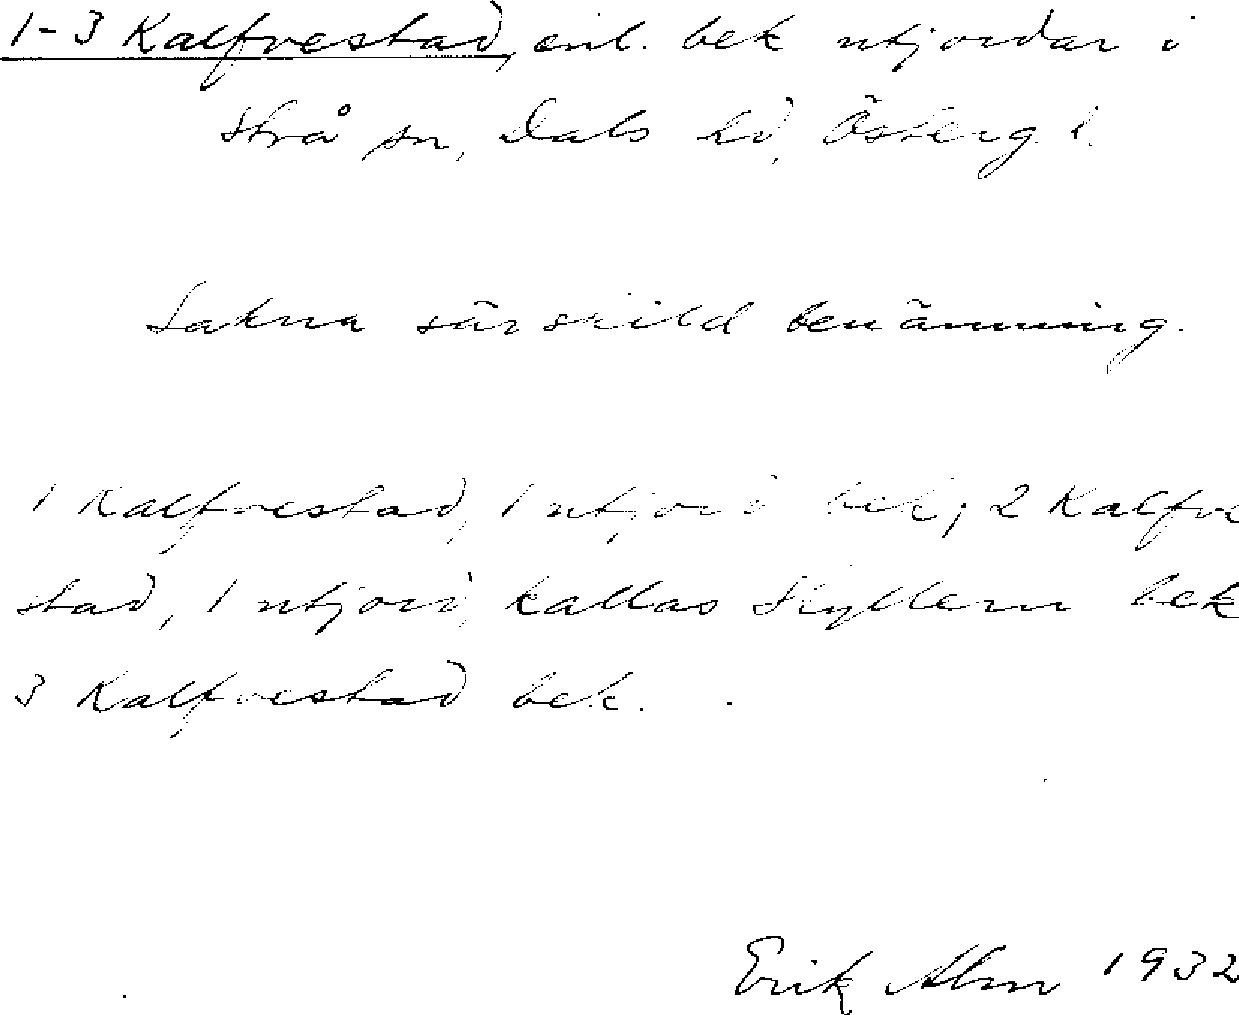 1-3 Kalfvestad, enl. bek utjordar i
Strå sn, Dals hd, Österg. l.
Sakna särskild benämning.
1 Kalfvestad, 1 utjord bek; 2 Kalfve
stad, 1 utjord, kallas bek
3 Kalfvestad bek.
Erik Alm 1932